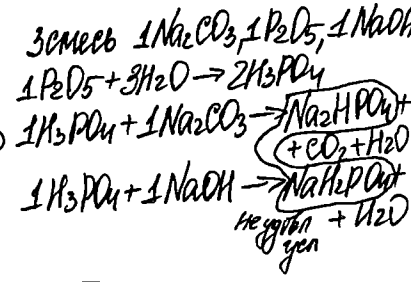 3 смесь 1Na₂CO₃, 1P₂O₅, 1NaOH
1P₂O₅+3H₂O→2H₃PO₄
1H₃PO₄+1Na₂CO₃→Na₂HPO₄+
+CO₂+H₂O
1H₃PO₄+1NaOH→NaH₂PO₄+
+H₂O
не удовл
усл